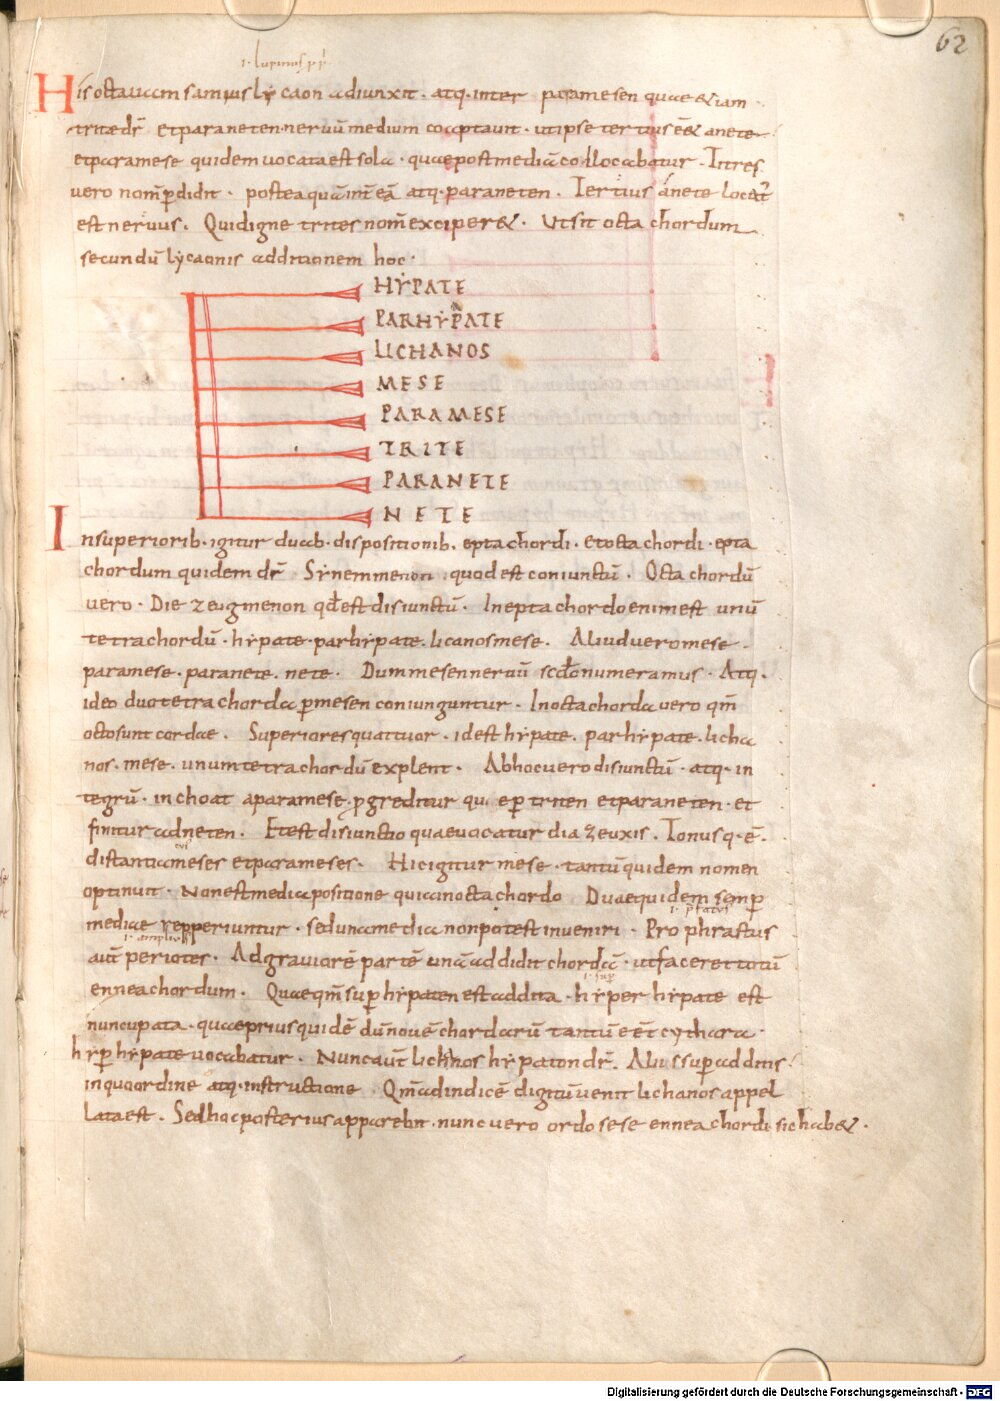 62
.i. lupinus pp̄
His octauam samius lẏcaon adiunxit · atq· inter paramesen quae &iam
trite dr̄ et paraneten neruū medium coaptauit · ut ipse tertius ēē& a nete
et paramese quidem uocata est sola · quae post mediā collocabatur · Trites
uero nom̄ perdidit · postea quā int̄ eā atq· paraneten · Tertius a nete locat̄
est neruus · Qui digne trites nom̄ exciper& · Ut sit octachordum
secundū lẏcaonis additionem hoc ·
HẎPATE
PARHẎPATE
LICHANOS
MESE
PARAMESE
TRITE
PARANETE
NETE
In superiorib· igitur duab· dispositionib· eptachordi · et octachordi · epta
chordum quidem dr̄ Sẏnemmenon · quod est coniunctū · Octachordū
uero · Diezeugmenon qd̄ est disiunctū · In eptachordo enim est unū
tetrachordū · hẏpate · parhẏpate · licanos mese · Aliud uero mese ·
paramese · paranete · nete · Dum mesen neruū scd̄o numeramus · Atq·
ideo duo tetrachorda ꝑ mesen coniunguntur · In octachorda uero qm̄
octo sunt cordae · Superiores quattuor · id est hẏpate · parhẏpate · licha
nos · mese · unum tetrachordū explent · Ab hoc uero disiunctū · atq· in
tegrū · inchoat a paramese · ꝓgreditur qu e ꝑ triten et paraneten · et
finitur ad neten · Et est disiunctio quae uocatur diazeuxis · Tonus q· ē ·
distantia meses et parameses · Hic igitur mese · tantū quidem nomen
optinuit · Non est media positione quia in octachordo Duae quidem semꝑ
mediae repperiuntur · sed una media non potest inueniri · Prophrastus
aut̄ periotes · Ad grauiorē partē unā addidit chordā · ut faceret totū
enneachordum · Quae qm̄ suꝑ hẏpaten est addita · hẏper hẏpate est
nuncupata · quae prius quidē dū nouē chordarū tantū eēt cythara ·
hẏꝑ hẏpate uocabatur · Nunc aut̄ lichanos hẏpaton dr̄ · Aliis suꝑadditis
in quo ordine atq· instructione · Qm̄ ad indicē digitū uenit lichanos appel
lata est · Sed hoc posterius apparebit · nunc uero ordo sese enneachordi sic hab& ·
Digitalisierung gefördert durch die Deutsche Forschungsgemeinschaft - DFG